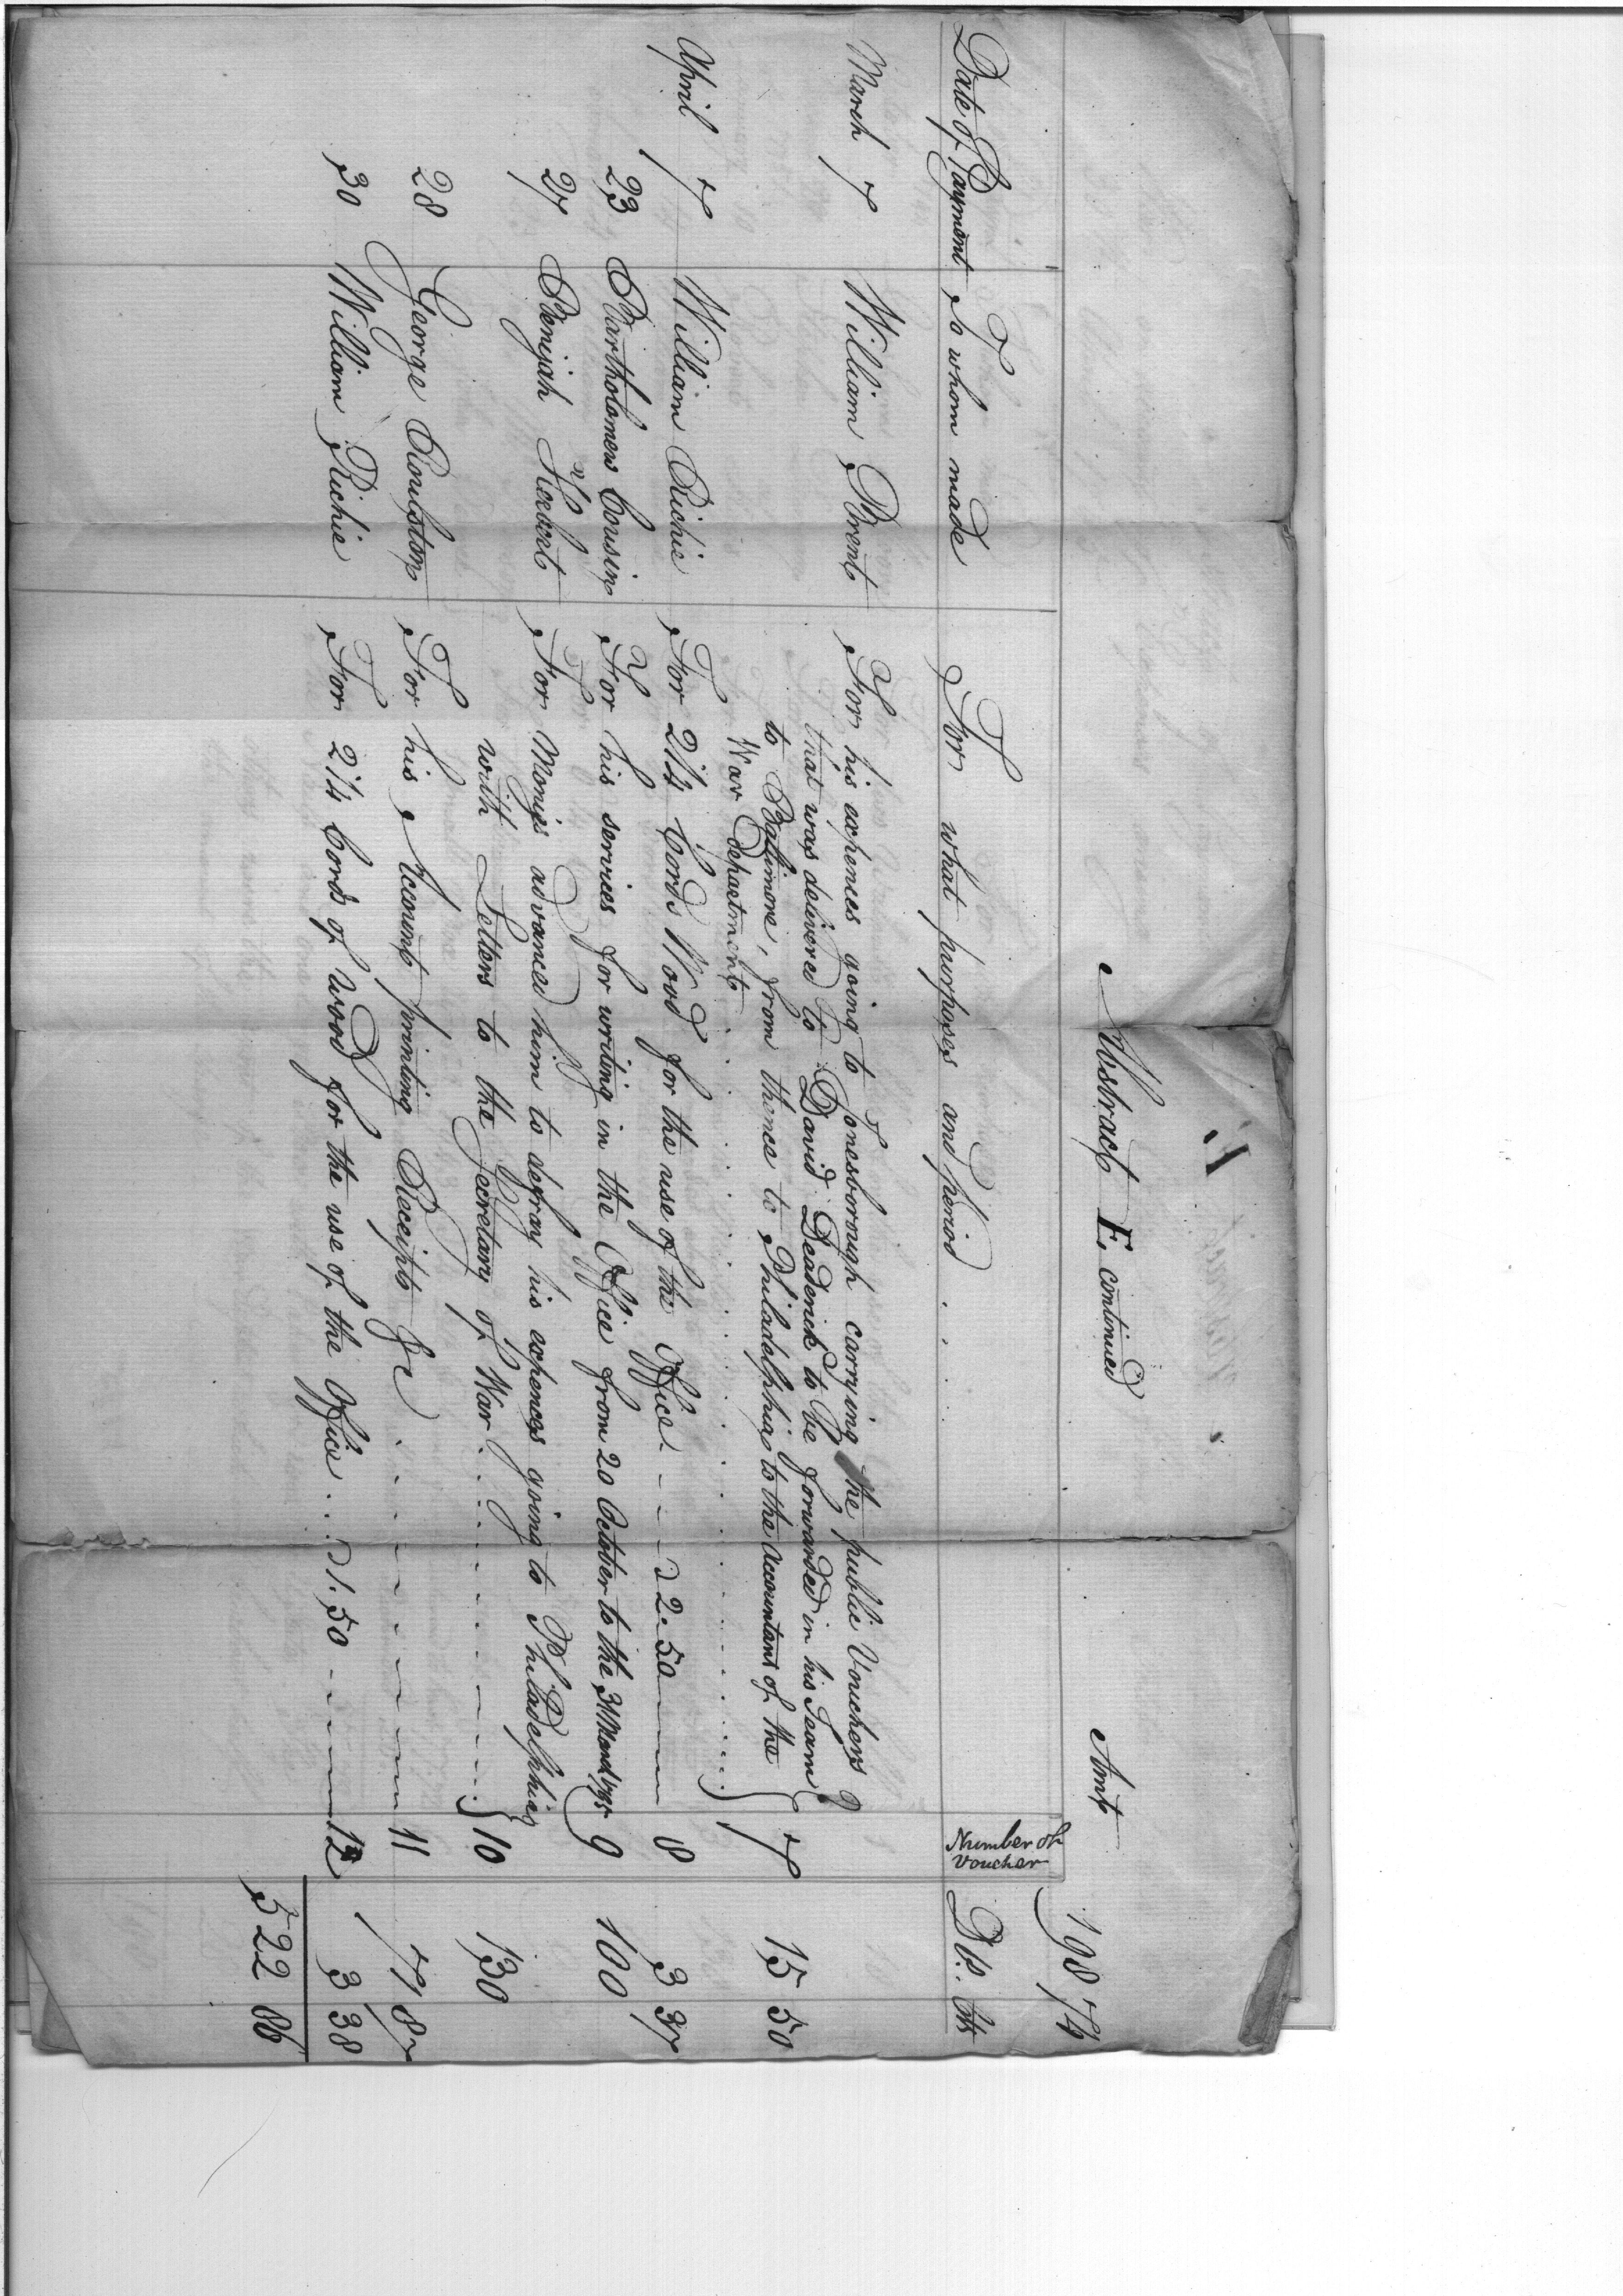 Abstract E. continued
Amt 198 74
Date of Payment To whom made For what purposes and period Number of Voucher Ds. Cts
March 7 William Brent For his expences going to Jonesborough carrying the public Vouchers
that was delivered to David Deaderick to be forwarded in his Team
to Baltimore, from thence to Philadelphia to the Accountant of the 7 15 50
War Department
April 7 William Richie For 2 1/4 Cords Wood for the use of the Office 2.50 8 3 37
23 Bartholomew Cousin For his services for writing in the Office from 20 October to the 31 March 1795 9 100
27 Benijah For Monies advanced him to defray his expences going to Philadelphia
with Letters to the Secretary of War 10 130
28 George Roulston For his Account printing Receipts &c 11 71 87
30 William Richie For 2 1/4 Cords of Wood for the use of the Office 1.50 12 3 38
522 86